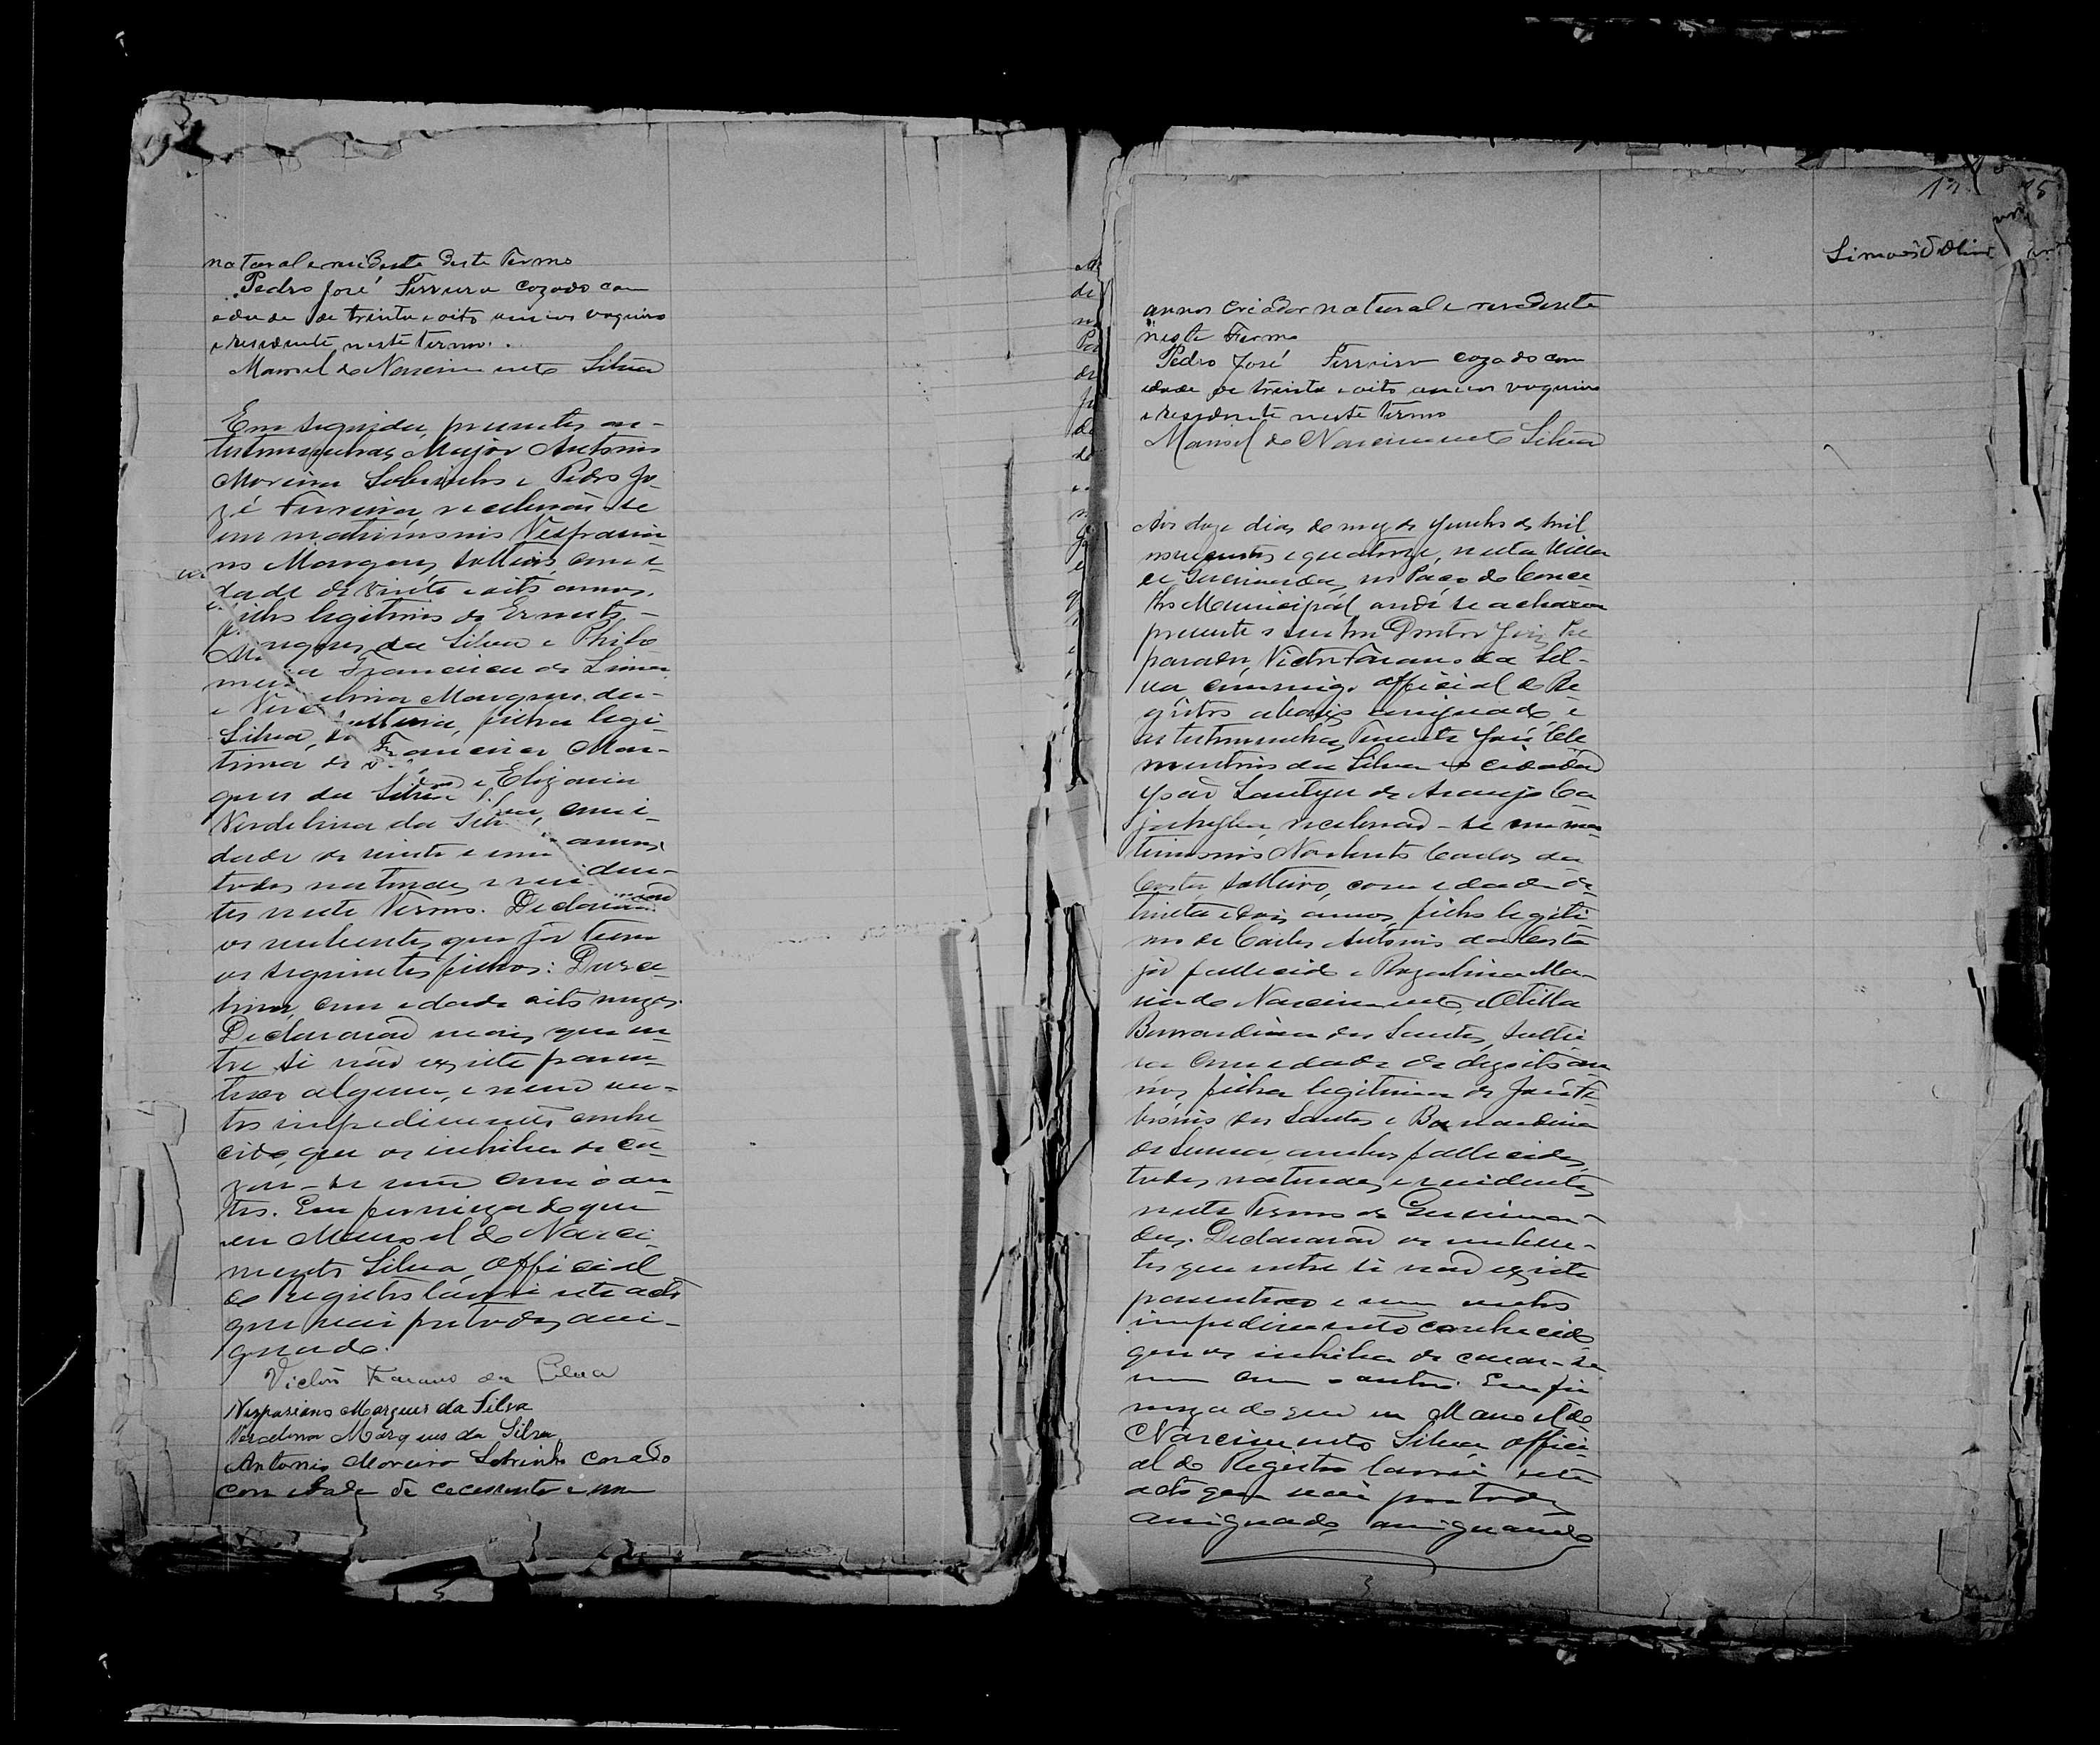 natural e rezidente deste Termo
Pedro José Ferreira cazado com
edade de trinta e oito annos vaqueiro
e rezidente neste termo.
Manoel do Nascimento Silva
Em seguida, presentes as
testemunhas, Major Antonio
Moreira Sobrinho e Pedro Jo-
zé Ferreira, receberão-se
em matrimonio Vespazia-
no Marques, solteiro, com e-
dade de vinte e oito annos,
filho legitimo de Ernesto
Marques da Silva e Philo-
mena Francisca de Lima
e Vercelina Marques da
Silva, solteira, filha legi-
tima de Francisco Mar-
ques da Silva e
Verdelina da Silva, com i-
dade de vinte e um annos,
todos naturaes e residen-
tes neste Termo. Declararão
os nubentes, que já tem
os seguintes filhos:
com edade oito mezes.
Declararão mais, que en-
tre si não existe paren-
tesco algum, e nem ou-
tro impedimento conhe-
cido, que os inhiba de ca-
zar-se um com o ou-
tro. Em firmeza do que
eu Manoel do Nasci-
mento Silva, Official
do registro lavrei este acto
que vai por todos assi-
gnado.
Victor Fabiano da Silva
Vespasiano Marques da Silva
Vercelina Marques da Silva
Antonio Moreira Sobrinho Casado
com edade de cecenta e um
17
Simões d'Oliv
annos criador natural e rezidente
neste Termo
Pedro José Ferreira cazado com
edade de trinta e oito annos vaqueiro
e rezidente neste termo
Manoel do Nascimento Silva
Aos doze dias do mez de Junho de mil
novecentos e quatorze, nesta Villa
de Queimadas, no Paço do Conce-
lho Municipal, onde se acharão
presente o senhor Doutor Juiz Pre-
parador, Victor Fabiano da Sil-
va, commigo official do Re-
gistro abaixo assignado, e
as testemunhas, Tenente José Cle-
mentino da Silva e o cidadão
Izaú Santiago de Araujo
receberão-se em ma-
trimonio Norberto Carlos da
Costa, solteiro, com edade de
trinta e dois annos, filho legiti-
mo de Carlos Antonio da Costa
já fallecido e Rozalina Ma-
ria do Nascimento, e Otilia
Bernardina dos Santos, soltei-
ra com edade de dezoito an-
nos, filha legitima de José
dos Santos e Bernardina
de Senna, ambos fallecidos,
todos naturaes e residentes
neste Termo de Queima-
das. Declararão os nuben-
tes que entre si não existe
parentesco e nem outro
impedimento conhecido
que os inhiba de cazar-se
um com o outro. Em fir-
meza do que eu Manoel do
Nascimento Silva, offici-
al do Registro lavrei este
acto que vai por todos
assignado, assignando